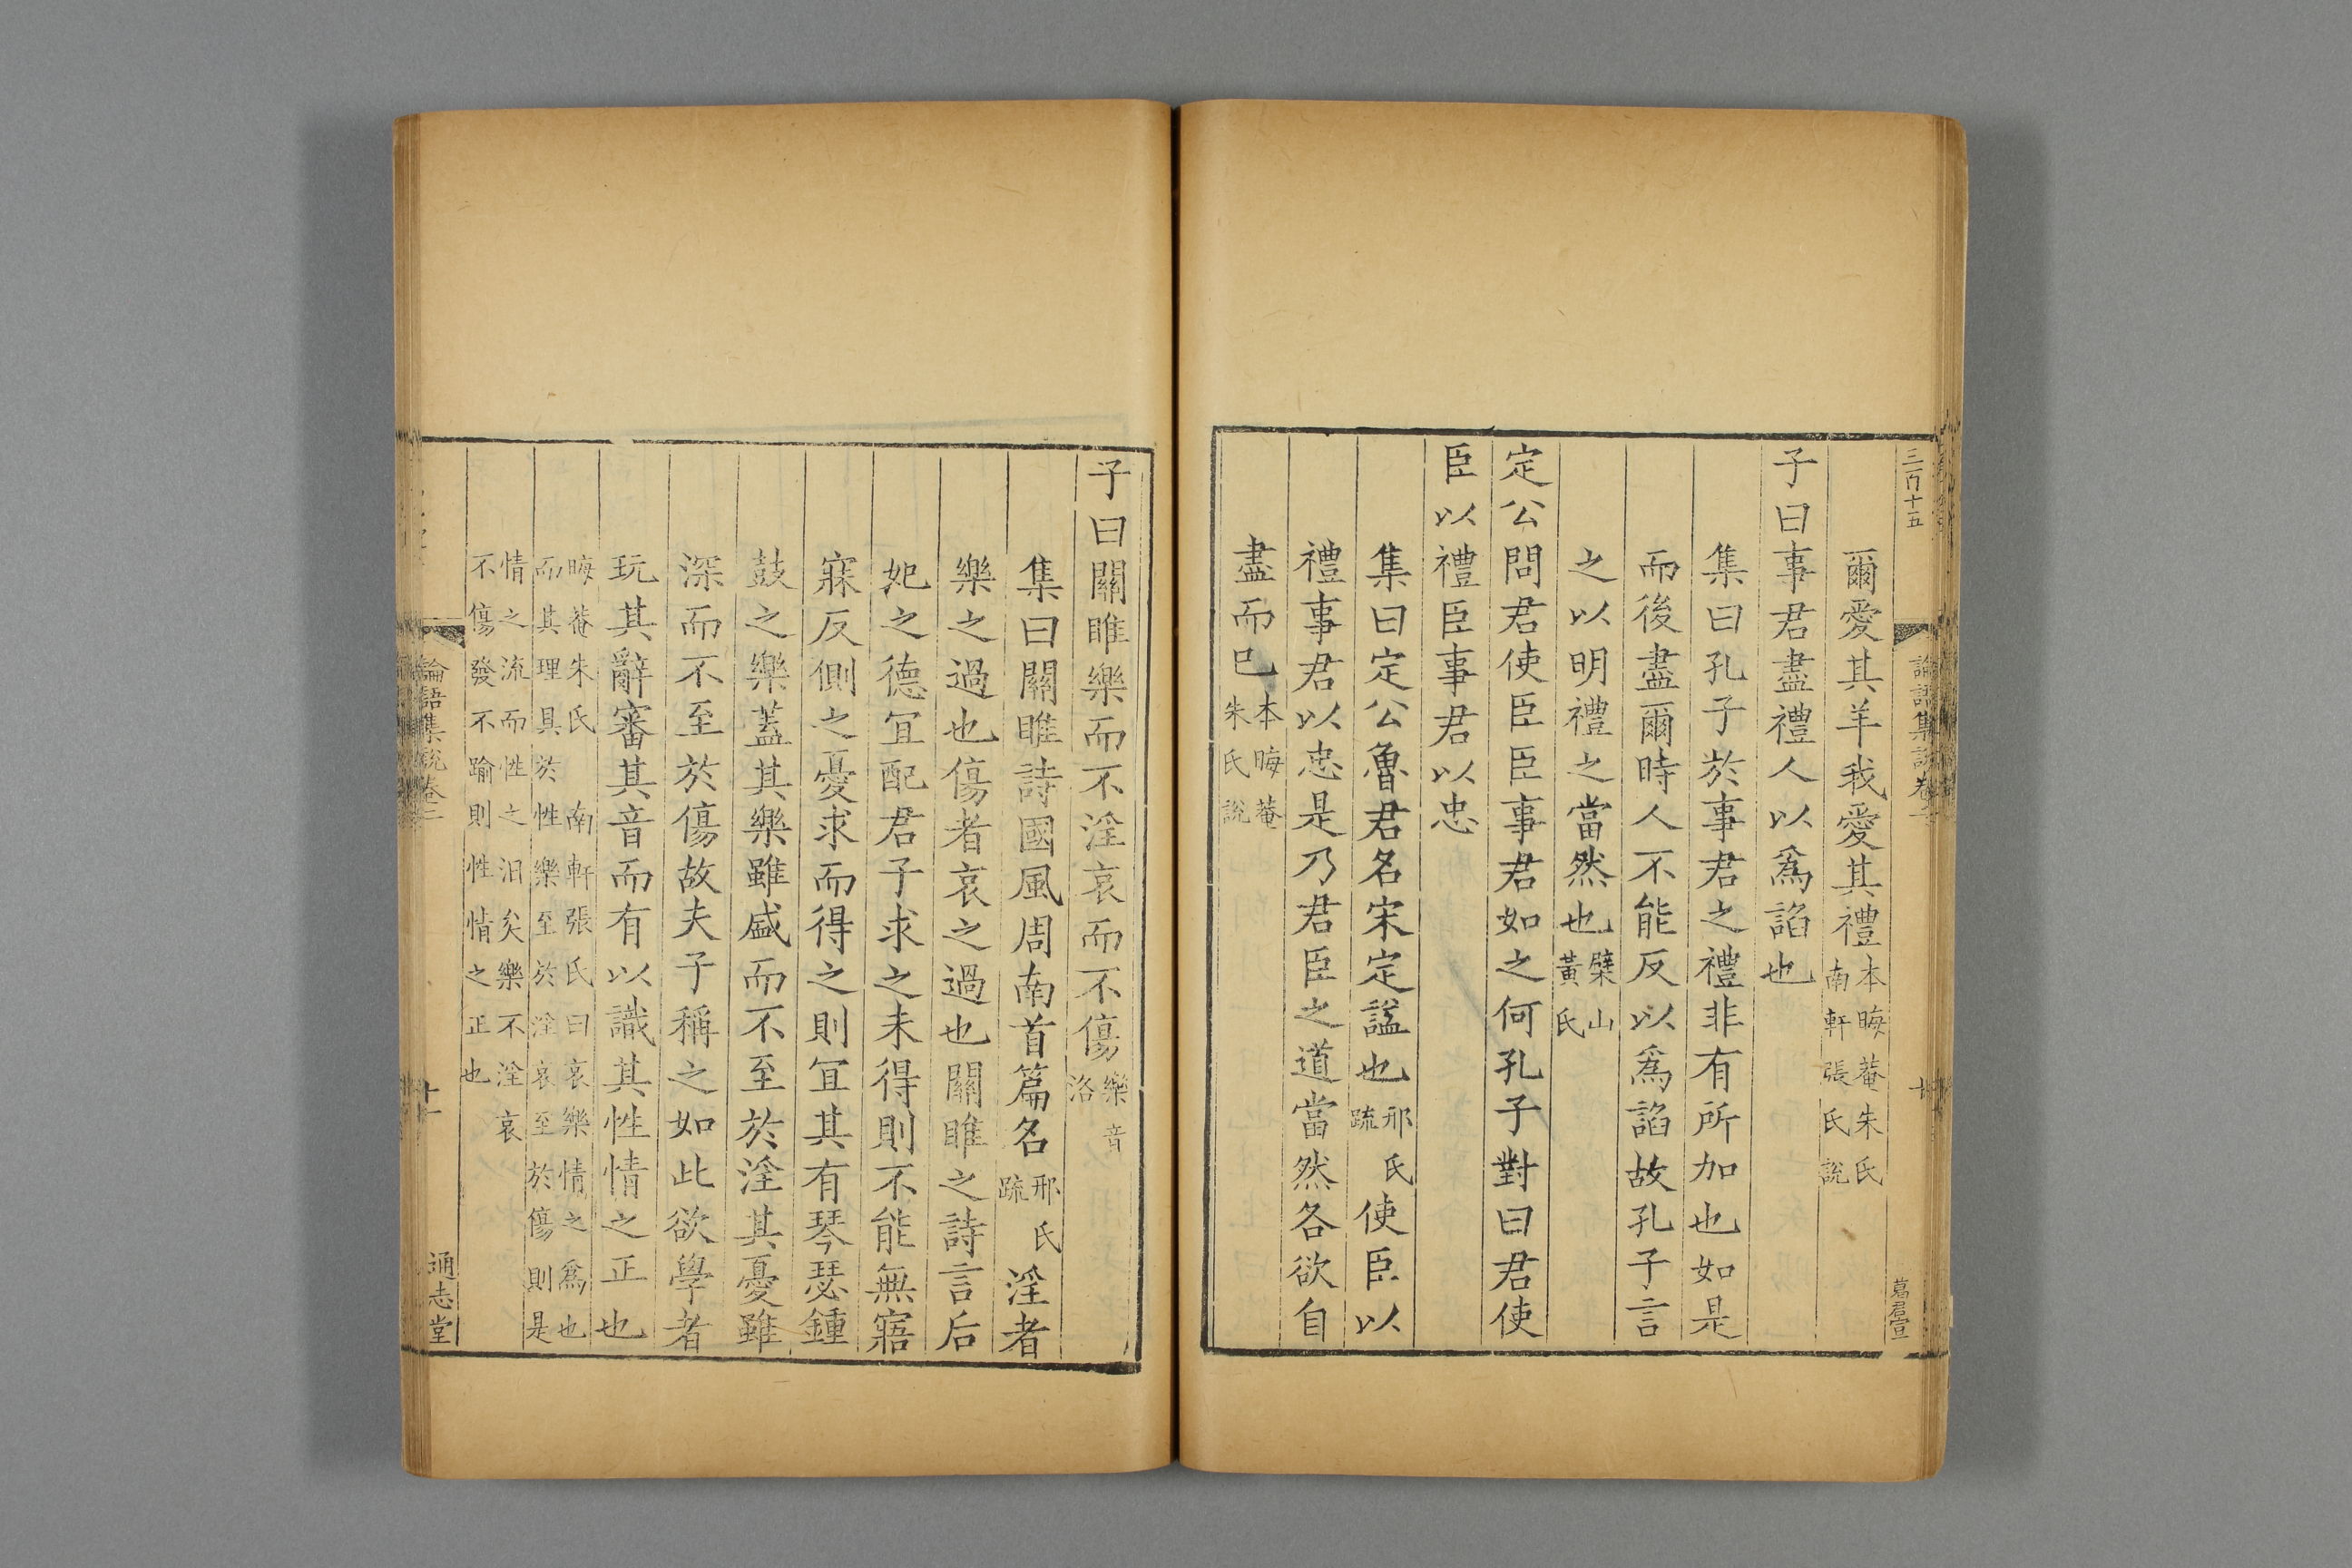 三百十五
論語集說卷二
葛君宣
爾愛其羊我愛其禮本晦菴朱氏南軒張氏說
子曰事君盡禮人以爲諂也
集曰孔子於事君之禮非有所加也如是
而後盡爾時人不能反以爲諂故孔子言
之以明禮之當然也櫱山黃氏
定公問君使臣臣事君如之何孔子對曰君使
臣以禮臣事君以忠
集曰定公魯君名宋定諡也邢氏疏使臣以
禮事君以忠是乃君臣之道當然各欲自
盡而已本晦菴朱氏說
子曰關雎樂而不淫哀而不傷樂音洛
集曰關雎詩國風周南首篇名邢氏疏淫者
樂之過也傷者哀之過也關雎之詩言后
妃之德宜配君子求之未得則不能無寤
寐反側之憂求而得之則宜其有琴瑟鍾
鼓之樂蓋其樂雖盛而不至於淫其憂雖
深而不至於傷故夫子稱之如此欲學者
玩其辭審其音而有以識其性情之正也
晦菴朱氏 南軒張氏曰哀樂情之爲也
而其理具於性樂至於淫哀至於傷則是
情之流而性之汨矣樂不淫哀
不傷發不踰則性情之正也
論語集說卷二
十一
通志堂